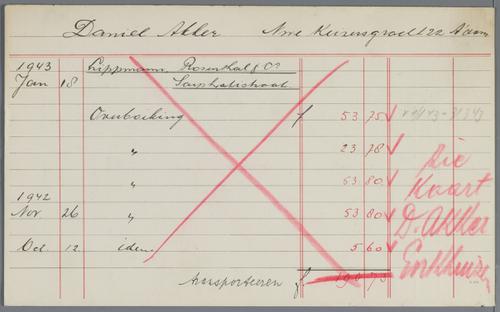 Daniel Akker Nwe Keizersgracht 22 A'dam
1943 Lippmann, Rosenthal & Co
Jan 18 Sarphatistraat
Overboeking f 53 75
" 23 78
" 53 80
1942
Nov 26 " 53 80
Oct. 12 idem 5 60
Zie
Kaart
D. Akker
Enkhuizen
Transporteeren f. 190 73